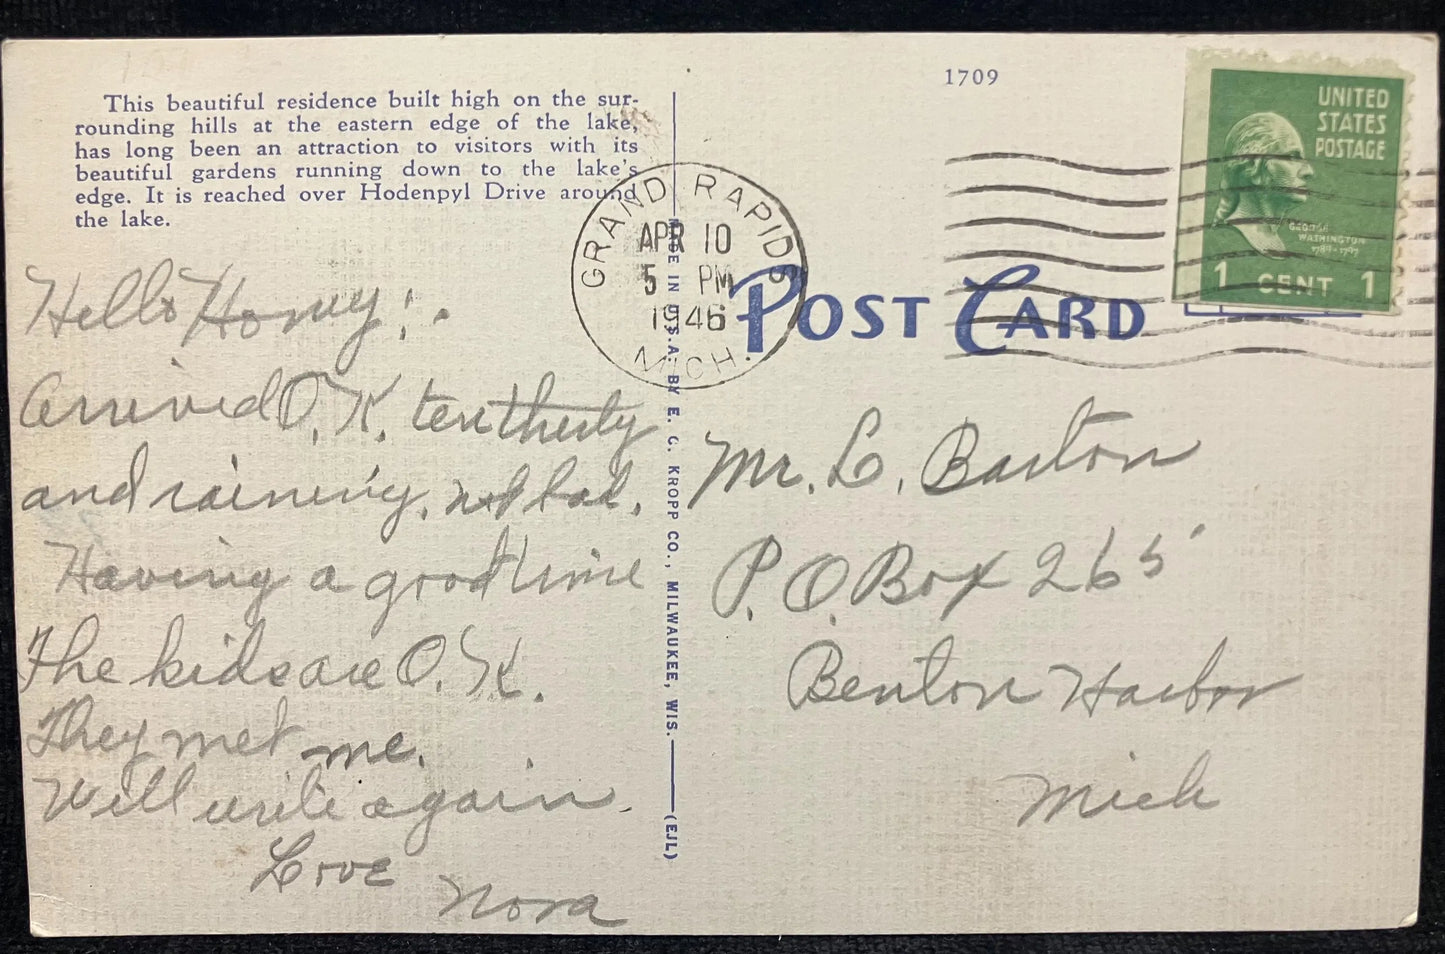 This beautiful residence built high on the sur-
rounding hills at the eastern edge of the lake,
has long been an attraction to visitors with its
beautiful gardens running down to the lake's
edge. It is reached over Hodenpyl Drive around
the lake.
Hello Honey:-
Arrived O.K. ten
and raining, not bad.
Having a good time
The kids are O.K.
They met me.
Will write again.
Love
Nora
MADE IN U.S.A. BY E. C. KROPP CO., MILWAUKEE, WIS. (EJL)
GRAND RAPIDS
APR 10
5 PM
1946
MICH.
1709
POST CARD
UNITED
STATES
POSTAGE
GEORGE
WASHINGTON
1789-1797
1 CENT 1
Mr. L. Barton
P.O. Box 265
Benton Harbor
Mich